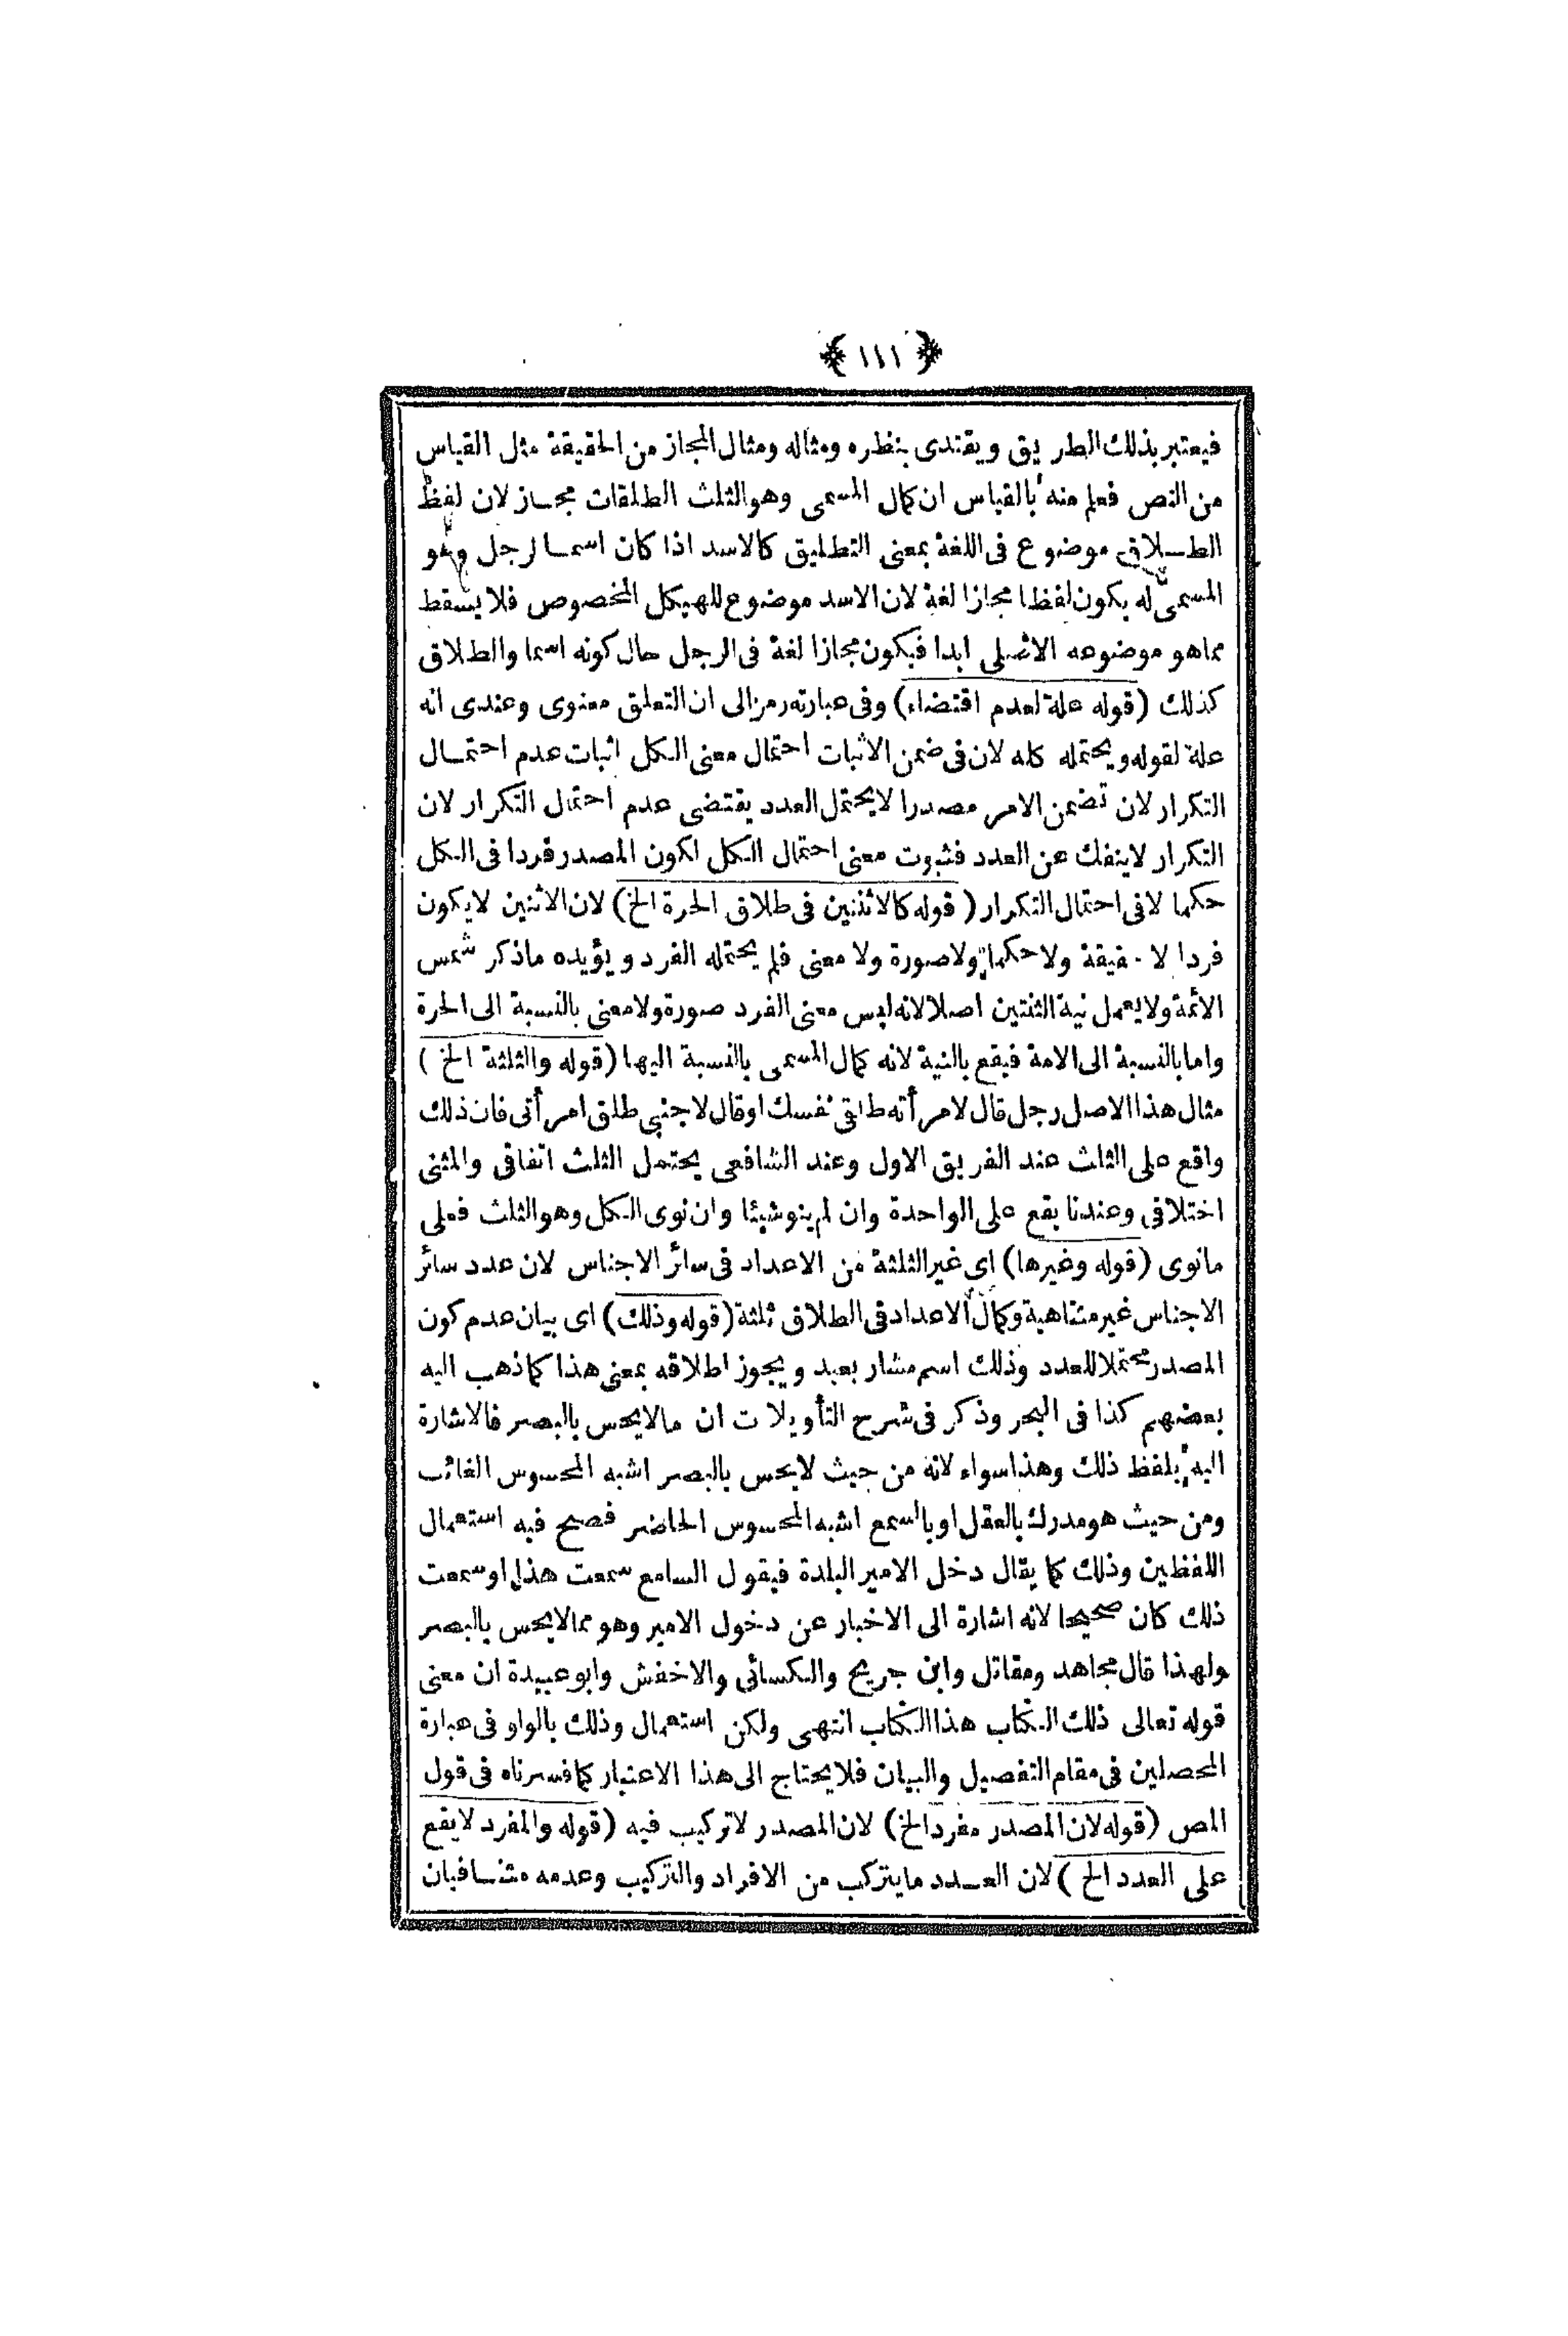 ﴿ ١١١ ﴾
فيعتبر بذلك الطريق ويقتدى بنظره ومثاله ومثال المجاز من الحقيقة مثل القياس
من النص فعلم منه بالقياس ان كمال المسمى وهو الثلث الطلقات مجاز لان لفظ
الطلاق موضوع فى اللغة بمعنى التطليق كالاسد اذا كان اسما لرجل وهو
المسمى له يكون لفظا مجازا لغة لان الاسد موضوع للهيكل المخصوص فلا يسقط
مما هو موضوعه الاصلى ابدا فيكون مجازا لغة فى الرجل حال كونه اسما والطلاق
كذلك (قوله علة لعدم اقتضاء) وفى عبارته رمز الى ان التعلق معنوى وعندى انه
علة لقوله ويحتمله كله لان فى ضمن الاثبات احتمال معنى الكل اثبات عدم احتمال
التكرار لان تضمن الامر مصدرا لا يحتمل العدد يقتضى عدم احتمال التكرار لان
التكرار لا ينفك عن العدد فثبوت معنى احتمال الكل لكون المصدر فردا فى الكل
حكما لا فى احتمال التكرار (قوله كالاثنين فى طلاق الحرة الخ) لان الاثنين لا يكون
فردا لا حقيقة ولا حكما ولا صورة ولا معنى فلم يحتمله الفرد ويؤيده ما ذكر شمس
الائمة ولا يعمل نية الثنتين اصلا لانه ليس معنى الفرد صورة ولا معنى بالنسبة الى الحرة
واما بالنسبة الى الامة فيقع بالنية لانه كمال المسمى بالنسبة اليها (قوله والثلثة الخ)
مثال هذا الاصل رجل قال لامرأته طلقى نفسك او قال لاجنبى طلق امرأتى فان ذلك
واقع على الثلث عند الفريق الاول وعند الشافعى يحتمل الثلث اتفاقى والمثنى
اختلافى وعندنا يقع على الواحدة وان لم ينو شيئا وان نوى الكل وهو الثلث فعلى
مانوى (قوله وغيرها) اى غير الثلثة من الاعداد فى سائر الاجناس لان عدد سائر
الاجناس غير متناهية وكمال الاعداد فى الطلاق ثلثة (قوله وذلك) اى بيان عدم كون
المصدر محتملا للعدد وذلك اسم مشار بعيد ويجوز اطلاقه بمعنى هذا كما ذهب اليه
بعضهم كذا فى البحر وذكر فى شرح التأويلات ان ما لا يحس بالبصر فالاشارة
اليه بلفظ ذلك وهذا سواء لانه من حيث لا يحس بالبصر اشبه المحسوس الغائب
ومن حيث هو مدرك بالعقل او بالسمع اشبه المحسوس الحاضر فصح فيه استعمال
اللفظين وذلك كما يقال دخل الامير البلدة فيقول السامع سمعت هذا او سمعت
ذلك كان صحيحا لانه اشارة الى الاخبار عن دخول الامير وهو مما لا يحس بالبصر
ولهذا قال مجاهد ومقاتل وابن جريح والكسائى والاخفش وابو عبيدة ان معنى
قوله تعالى ذلك الكتاب هذا الكتاب انتهى ولكن استعمال وذلك بالواو فى عبارة
المحصلين فى مقام التفصيل والبيان فلا يحتاج الى هذا الاعتبار كما فسرناه فى قول
المص (قوله لان المصدر مفرد الخ) لان المصدر لا تركيب فيه (قوله والمفرد لا يقع
على العدد الخ) لان العدد ما يتركب من الافراد والتركيب وعدمه متنافيان